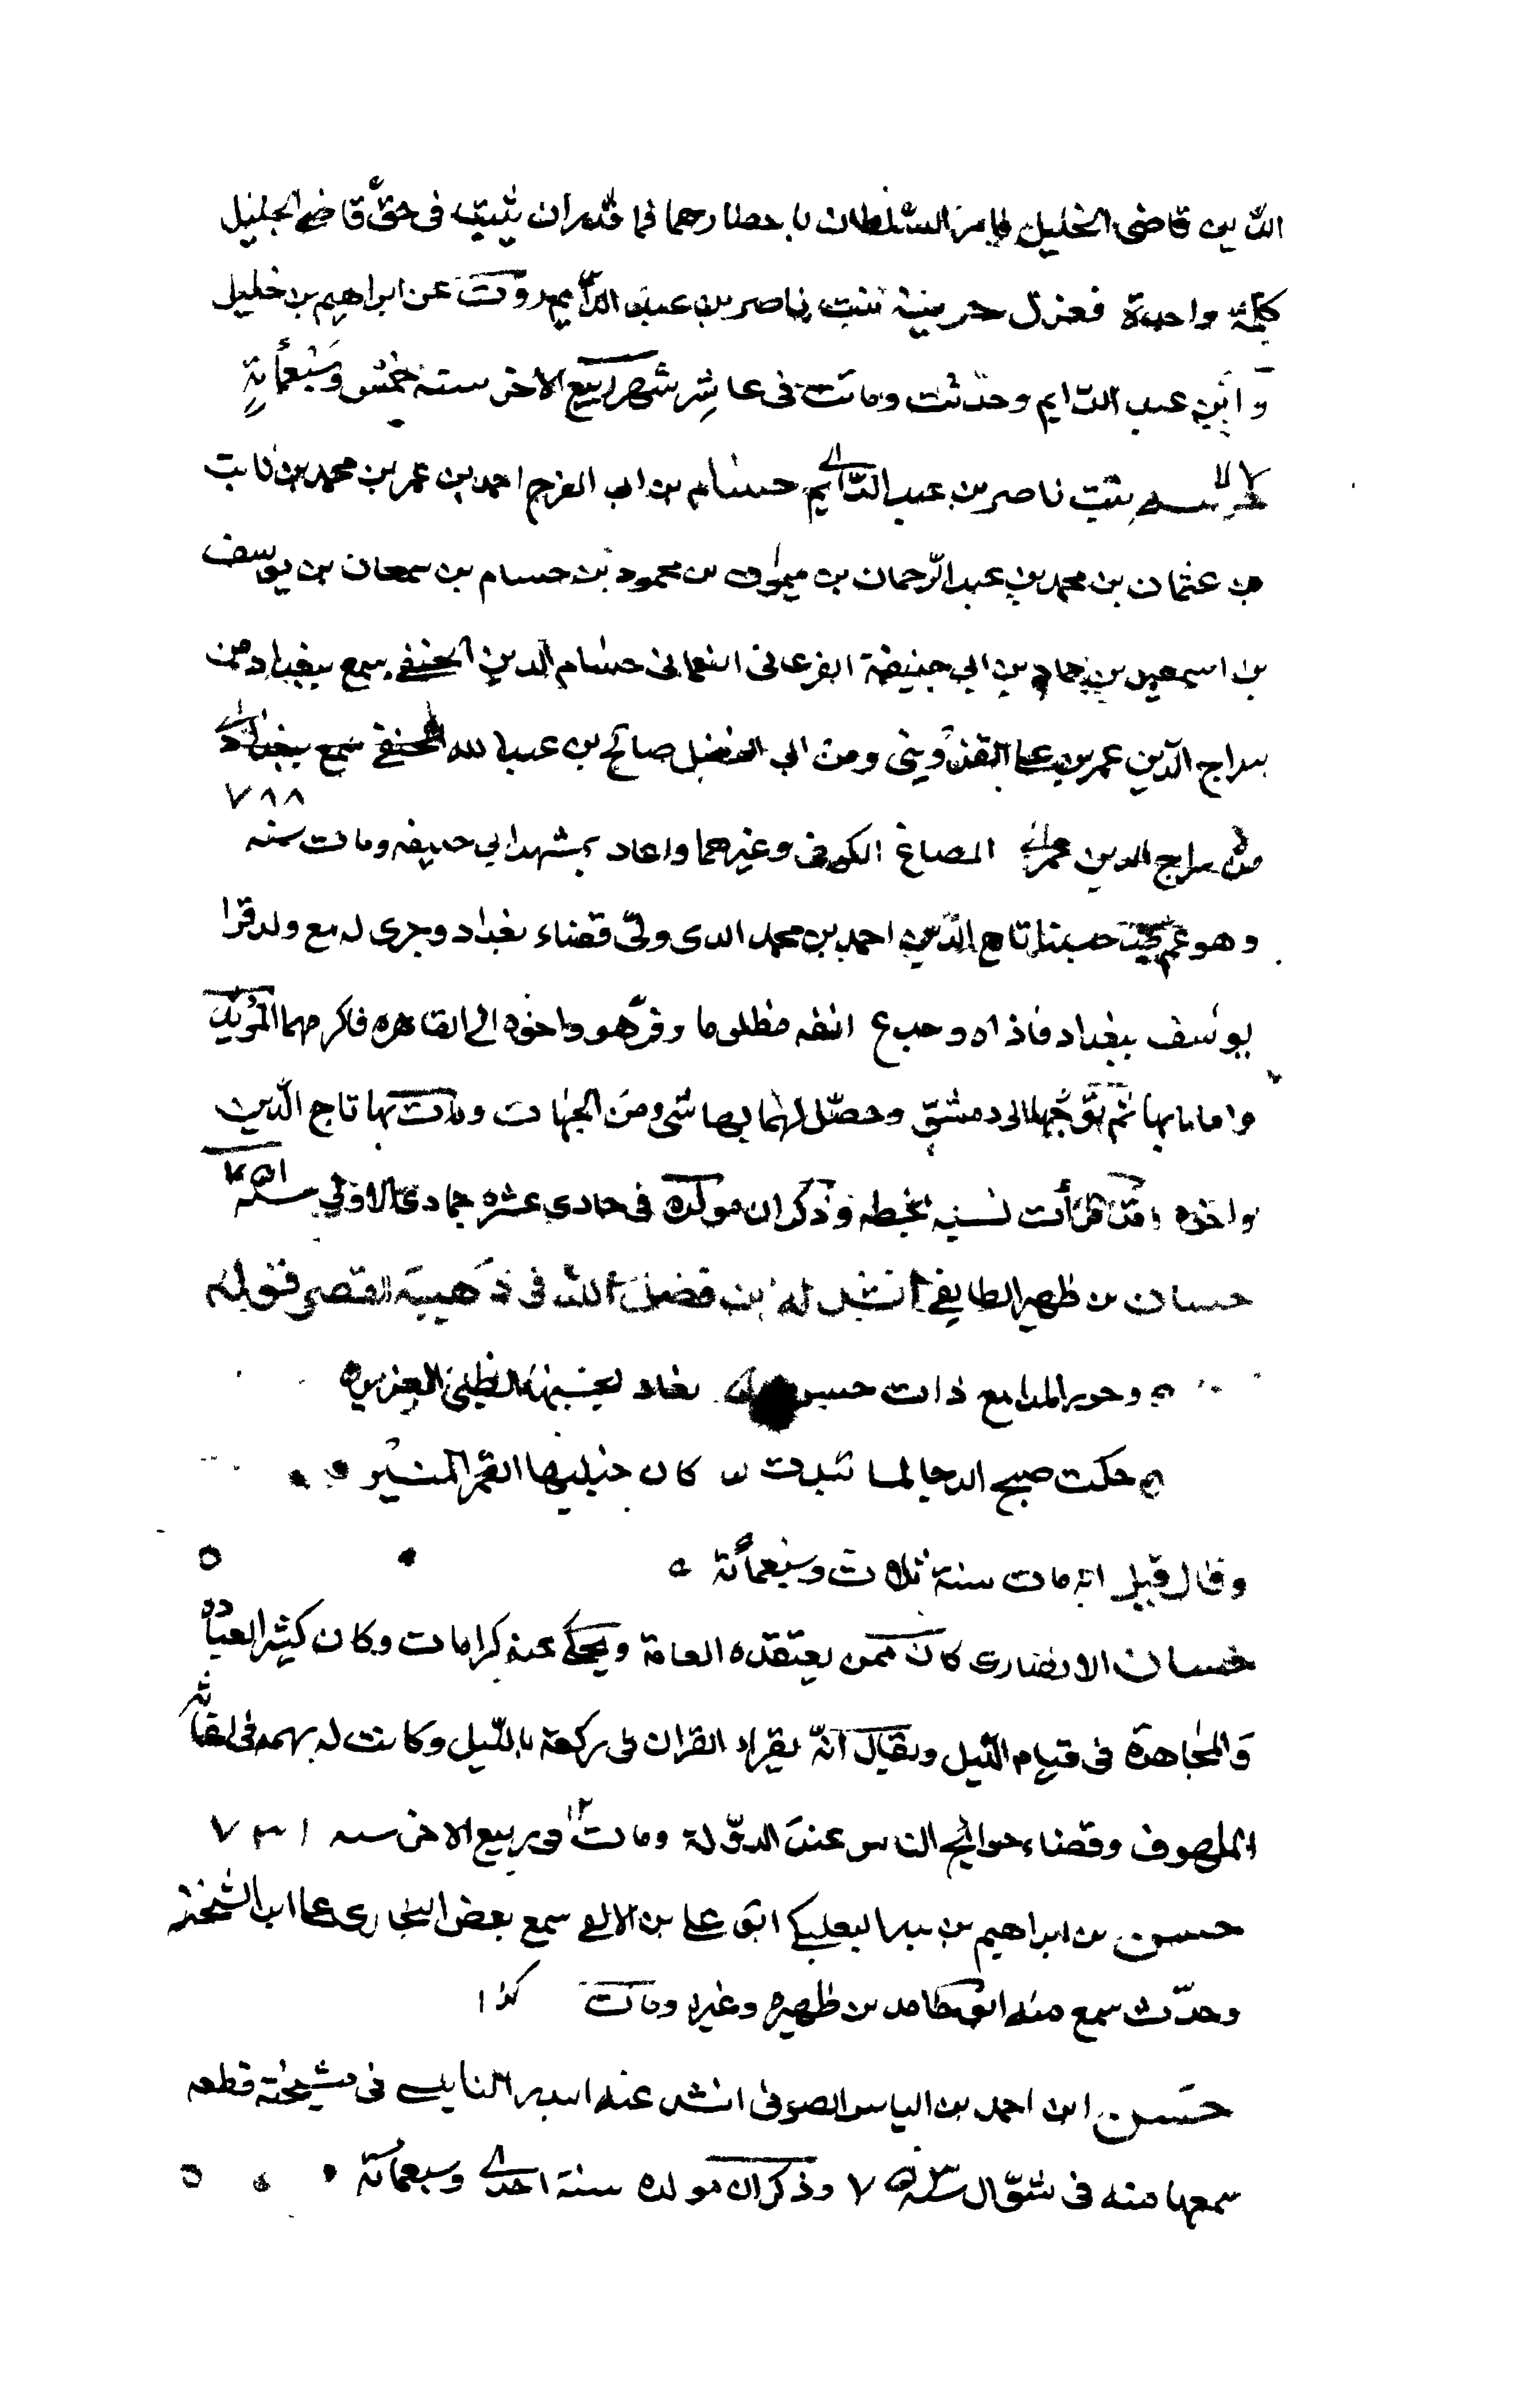 الدين قاضى الخليل فامر السّلطان باحضارهما فما قدر ان يثبت فى حقّ قاضى الخليل
كلمة واحدة فعزل حرمية بنت ناصر بن عبد الدّايم روت عن ابراهيم بن خليل
وابن عبد الدّايم وحدّثت وماتت فى عاشر شهر ربيع الاخر سنة خمس وسبعمأية
بنت ناصر بن عبد الدّايم حسام بن ابى الفرج احمد بن عمر بن محمد بن ثابت
بن عثمان بن محمد بن عبد الرّحمان بن ميمون بن محمود بن حسام بن سمعان بن يوسف
بن اسمعيل بن حماد بن ابي حنيفة الفرغانى النعمانى حسام الدين الحنفى سمع ببغداد من
سراج الدّين عمر بن على القزوينى ومن ابى الفضل صالح بن عبد الله الحنفى سمع ببغداد
٧٨٨
من سراج الدين عمر المصاغ الكوفى وغيرهما واعاد بمشهد ابي حنيفه ومات سنه
وهو عم تاج الدّين احمد بن محمد الدى ولّى قضاء بغداد وجرى له مع ولد قرا
يوسف ببغداد فاذاه وجدع انفه مظلوما وفرّ هو واخوه الى القاهره فاكرمهما المؤيّد
واقاما بها ثم توجّها الى دمشق وحصّل لهما بها شىء من الجهات ومات بها تاج الدّين
واخوه وقد قرأت نسبه بخطه وذكر ان مولده فى حادى عشره جمادى الاولى سنة ٧٥١
حسان بن ظهير الطايفى انشد له ابن فضل الله فى ذهبية القصر فقوله
وحور المدامع ذات حسن تغار لحسنها الظبى الغريره
حكت صبح الدجا لما تبدت كان جبينها القمر المنير
وقال قيل انه مات سنة ثلاث وسبعمأئة
حسان الانصارى كان ممن يعتقده العامة ويحكى عنه كرامات وكان كثير العباده
والمجاهدة فى قيام اللّيل ويقال انّه يقراء القران فى ركعة باللّيل وكانت له همه فى اغاثه
الملهوف وقضاء حوايج الناس عند الدوّلة ومات ١٢ فى ربيع الاخر سنه ٧٣١
حسن بن ابراهيم بن بدر البعلبكى ابو على بن الالفى سمع بعض البخارى على ابن الشحنه
وحدّث سمع منه ابو حامد بن ظهيره وغيره ومات كذا
حسن ابن احمد بن الياس الصوفى انشد عنه البدر النابلسى فى مشيخته قطعه
سمعها منه فى شوّال سنة ٧٥٣ وذكر ان مولده سنة احدى وسبعمأئة